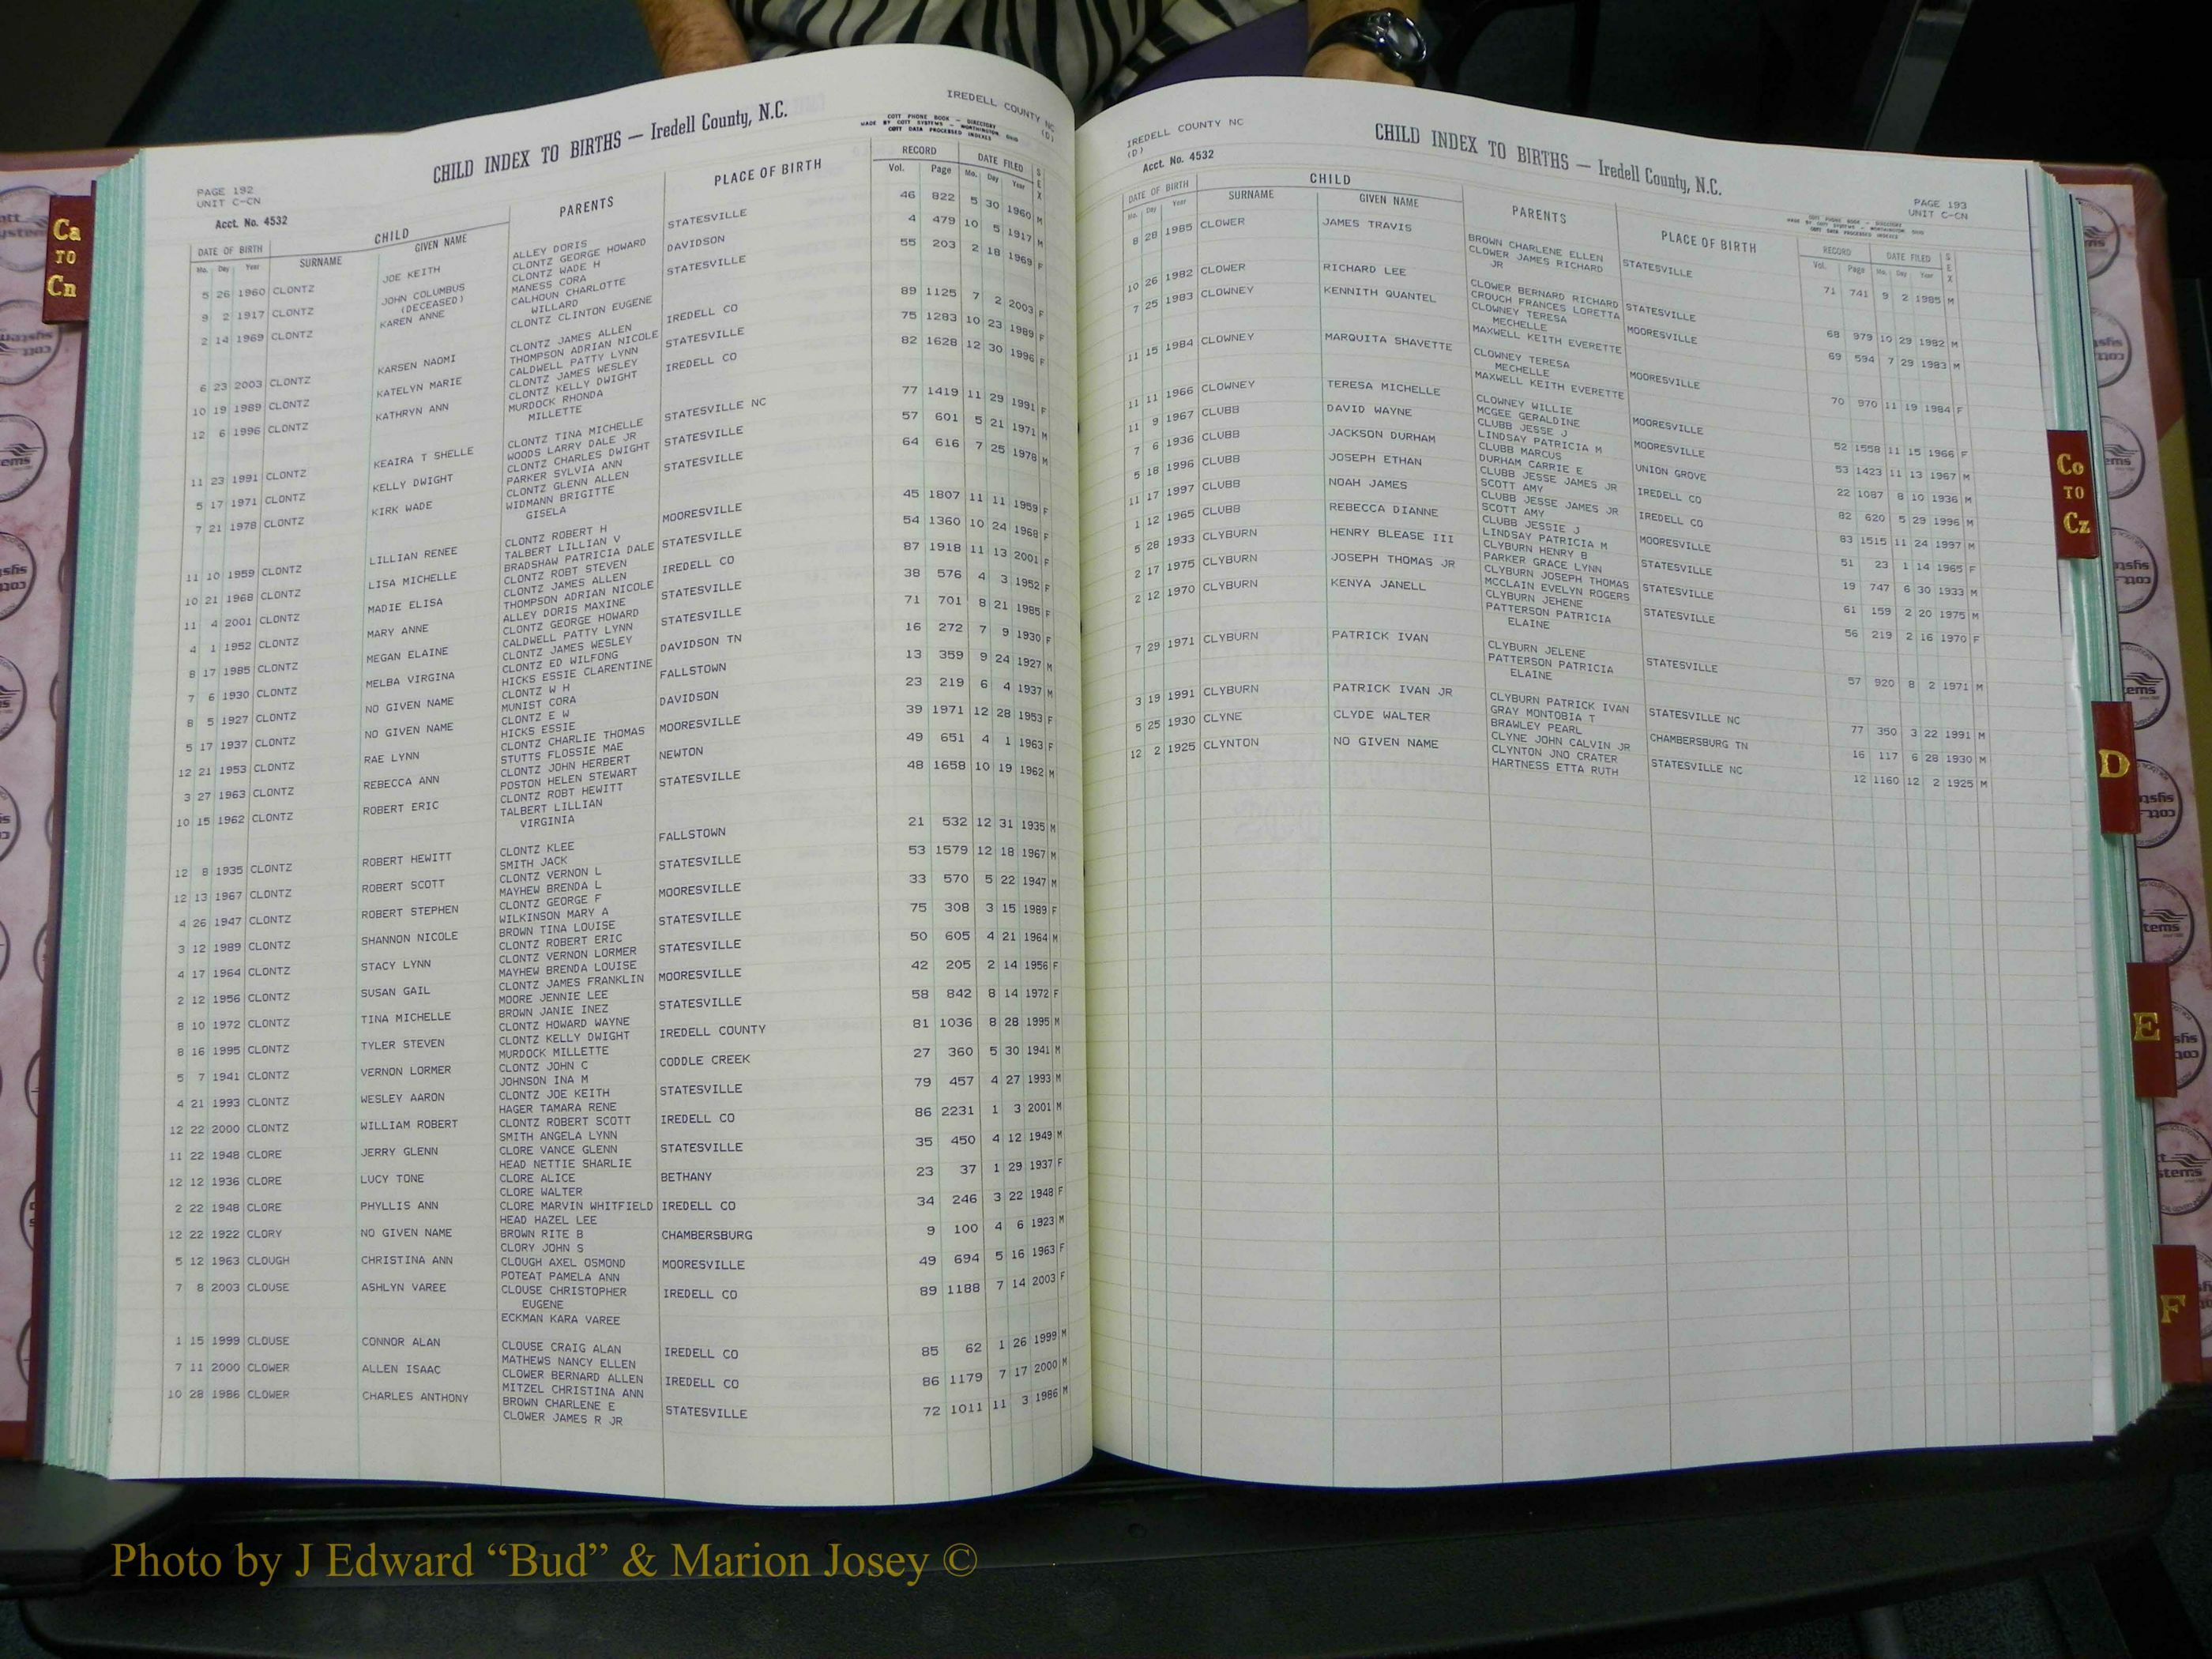 IREDELL COUNTY NC
(D)
CHILD INDEX TO BIRTHS — Iredell County, N.C.
COTT PHONE BOOK — DIRECTORY
MADE BY COTT SYSTEMS — WORTHINGTON, OHIO
COTT DATA PROCESSED INDEXES
PAGE 192
UNIT C-CN
Acct. No. 4532
DATE OF BIRTH CHILD PARENTS PLACE OF BIRTH RECORD DATE FILED SEX
Mo. Day Year SURNAME GIVEN NAME Vol. Page Mo. Day Year
5 26 1960 CLONTZ JOE KEITH ALLEY DORIS STATESVILLE 46 822 5 30 1960 M
CLONTZ GEORGE HOWARD
9 2 1917 CLONTZ JOHN COLUMBUS CLONTZ WADE H DAVIDSON 4 479 10 5 1917 M
(DECEASED) MANESS CORA
2 14 1969 CLONTZ KAREN ANNE CALHOUN CHARLOTTE STATESVILLE 55 203 2 18 1969 F
WILLARD
CLONTZ CLINTON EUGENE
6 23 2003 CLONTZ KARSEN NAOMI CLONTZ JAMES ALLEN IREDELL CO 89 1125 7 2 2003 F
THOMPSON ADRIAN NICOLE
10 19 1989 CLONTZ KATELYN MARIE CALDWELL PATTY LYNN STATESVILLE 75 1283 10 23 1989 F
CLONTZ JAMES WESLEY
12 6 1996 CLONTZ KATHRYN ANN CLONTZ KELLY DWIGHT IREDELL CO 82 1628 12 30 1996 F
MURDOCK RHONDA
MILLETTE
11 23 1991 CLONTZ KEAIRA T SHELLE CLONTZ TINA MICHELLE STATESVILLE NC 77 1419 11 29 1991 F
WOODS LARRY DALE JR
5 17 1971 CLONTZ KELLY DWIGHT CLONTZ CHARLES DWIGHT STATESVILLE 57 601 5 21 1971 M
PARKER SYLVIA ANN
7 21 1978 CLONTZ KIRK WADE CLONTZ GLENN ALLEN STATESVILLE 64 616 7 25 1978 M
WIDMANN BRIGITTE
GISELA
11 10 1959 CLONTZ LILLIAN RENEE CLONTZ ROBERT H MOORESVILLE 45 1807 11 11 1959 F
TALBERT LILLIAN V
10 21 1968 CLONTZ LISA MICHELLE BRADSHAW PATRICIA DALE STATESVILLE 54 1360 10 24 1968 F
CLONTZ ROBT STEVEN
11 4 2001 CLONTZ MADIE ELISA CLONTZ JAMES ALLEN IREDELL CO 87 1918 11 13 2001 F
THOMPSON ADRIAN NICOLE
4 1 1952 CLONTZ MARY ANNE ALLEY DORIS MAXINE STATESVILLE 38 576 4 3 1952 F
CLONTZ GEORGE HOWARD
8 17 1985 CLONTZ MEGAN ELAINE CALDWELL PATTY LYNN STATESVILLE 71 701 8 21 1985 F
CLONTZ JAMES WESLEY
7 6 1930 CLONTZ MELBA VIRGINA CLONTZ ED WILFONG DAVIDSON TN 16 272 7 9 1930 F
HICKS ESSIE CLARENTINE
8 5 1927 CLONTZ NO GIVEN NAME CLONTZ W H FALLSTOWN 13 359 9 24 1927 M
MUNIST CORA
5 17 1937 CLONTZ NO GIVEN NAME CLONTZ E W DAVIDSON 23 219 6 4 1937 M
HICKS ESSIE
12 21 1953 CLONTZ RAE LYNN CLONTZ CHARLIE THOMAS MOORESVILLE 39 1971 12 28 1953 F
STUTTS FLOSSIE MAE
3 27 1963 CLONTZ REBECCA ANN CLONTZ JOHN HERBERT NEWTON 49 651 4 1 1963 F
POSTON HELEN STEWART
10 15 1962 CLONTZ ROBERT ERIC CLONTZ ROBT HEWITT STATESVILLE 48 1658 10 19 1962 M
TALBERT LILLIAN
VIRGINIA
12 8 1935 CLONTZ ROBERT HEWITT CLONTZ KLEE FALLSTOWN 21 532 12 31 1935 M
SMITH JACK
12 13 1967 CLONTZ ROBERT SCOTT CLONTZ VERNON L STATESVILLE 53 1579 12 18 1967 M
MAYHEW BRENDA L
4 26 1947 CLONTZ ROBERT STEPHEN CLONTZ GEORGE F MOORESVILLE 33 570 5 22 1947 M
WILKINSON MARY A
3 12 1989 CLONTZ SHANNON NICOLE BROWN TINA LOUISE STATESVILLE 75 308 3 15 1989 F
CLONTZ ROBERT ERIC
4 17 1964 CLONTZ STACY LYNN CLONTZ VERNON LORMER STATESVILLE 50 605 4 21 1964 M
MAYHEW BRENDA LOUISE
2 12 1956 CLONTZ SUSAN GAIL CLONTZ JAMES FRANKLIN MOORESVILLE 42 205 2 14 1956 F
MOORE JENNIE LEE
8 10 1972 CLONTZ TINA MICHELLE BROWN JANIE INEZ STATESVILLE 58 842 8 14 1972 F
CLONTZ HOWARD WAYNE
8 16 1995 CLONTZ TYLER STEVEN CLONTZ KELLY DWIGHT IREDELL COUNTY 81 1036 8 28 1995 M
MURDOCK MILLETTE
5 7 1941 CLONTZ VERNON LORMER CLONTZ JOHN C CODDLE CREEK 27 360 5 30 1941 M
JOHNSON INA M
4 21 1993 CLONTZ WESLEY AARON CLONTZ JOE KEITH STATESVILLE 79 457 4 27 1993 M
HAGER TAMARA RENE
12 22 2000 CLONTZ WILLIAM ROBERT CLONTZ ROBERT SCOTT IREDELL CO 86 2231 1 3 2001 M
SMITH ANGELA LYNN
11 22 1948 CLORE JERRY GLENN CLORE VANCE GLENN STATESVILLE 35 450 4 12 1949 M
HEAD NETTIE SHARLIE
12 12 1936 CLORE LUCY TONE CLORE ALICE BETHANY 23 37 1 29 1937 F
CLORE WALTER
2 22 1948 CLORE PHYLLIS ANN CLORE MARVIN WHITFIELD IREDELL CO 34 246 3 22 1948 F
HEAD HAZEL LEE
12 22 1922 CLORY NO GIVEN NAME BROWN RITE B CHAMBERSBURG 9 100 4 6 1923 M
CLORY JOHN S
5 12 1963 CLOUGH CHRISTINA ANN CLOUGH AXEL OSMOND MOORESVILLE 49 694 5 16 1963 F
POTEAT PAMELA ANN
7 8 2003 CLOUSE ASHLYN VAREE CLOUSE CHRISTOPHER IREDELL CO 89 1188 7 14 2003 F
EUGENE
ECKMAN KARA VAREE
1 15 1999 CLOUSE CONNOR ALAN CLOUSE CRAIG ALAN IREDELL CO 85 62 1 26 1999 M
MATHEWS NANCY ELLEN
7 11 2000 CLOWER ALLEN ISAAC CLOWER BERNARD ALLEN IREDELL CO 86 1179 7 17 2000 M
MITZEL CHRISTINA ANN
10 28 1986 CLOWER CHARLES ANTHONY BROWN CHARLENE E STATESVILLE 72 1011 11 3 1986 M
CLOWER JAMES R JR
IREDELL COUNTY NC
(D)
Acct. No. 4532
CHILD INDEX TO BIRTHS — Iredell County, N.C.
PAGE 193
UNIT C-CN
COTT PHONE BOOK — DIRECTORY
MADE BY COTT SYSTEMS — WORTHINGTON, OHIO
COTT DATA PROCESSED INDEXES
DATE OF BIRTH CHILD PARENTS PLACE OF BIRTH RECORD DATE FILED SEX
Mo. Day Year SURNAME GIVEN NAME Vol. Page Mo. Day Year
8 28 1985 CLOWER JAMES TRAVIS BROWN CHARLENE ELLEN STATESVILLE 71 741 9 2 1985 M
CLOWER JAMES RICHARD
JR
10 26 1982 CLOWER RICHARD LEE CLOWER BERNARD RICHARD STATESVILLE 68 979 10 29 1982 M
CROUCH FRANCES LORETTA
7 25 1983 CLOWNEY KENNITH QUANTEL CLOWNEY TERESA MOORESVILLE 69 594 7 29 1983 M
MECHELLE
MAXWELL KEITH EVERETTE
11 15 1984 CLOWNEY MARQUITA SHAVETTE CLOWNEY TERESA MOORESVILLE 70 970 11 19 1984 F
MECHELLE
MAXWELL KEITH EVERETTE
11 11 1966 CLOWNEY TERESA MICHELLE CLOWNEY WILLIE MOORESVILLE 52 1558 11 15 1966 F
MCGEE GERALDINE
11 9 1967 CLUBB DAVID WAYNE CLUBB JESSE J MOORESVILLE 53 1423 11 13 1967 M
LINDSAY PATRICIA M
7 6 1936 CLUBB JACKSON DURHAM CLUBB MARCUS UNION GROVE 22 1087 8 10 1936 M
DURHAM CARRIE E
5 18 1996 CLUBB JOSEPH ETHAN CLUBB JESSE JAMES JR IREDELL CO 82 620 5 29 1996 M
SCOTT AMY
11 17 1997 CLUBB NOAH JAMES CLUBB JESSE JAMES JR IREDELL CO 83 1515 11 24 1997 M
SCOTT AMY
1 12 1965 CLUBB REBECCA DIANNE CLUBB JESSIE J MOORESVILLE 51 23 1 14 1965 F
LINDSAY PATRICIA M
5 28 1933 CLYBURN HENRY BLEASE III CLYBURN HENRY B STATESVILLE 19 747 6 30 1933 M
PARKER GRACE LYNN
2 17 1975 CLYBURN JOSEPH THOMAS JR CLYBURN JOSEPH THOMAS STATESVILLE 61 159 2 20 1975 M
MCCLAIN EVELYN ROGERS
2 12 1970 CLYBURN KENYA JANELL CLYBURN JEHENE STATESVILLE 56 219 2 16 1970 F
PATTERSON PATRICIA
ELAINE
7 29 1971 CLYBURN PATRICK IVAN CLYBURN JELENE STATESVILLE 57 920 8 2 1971 M
PATTERSON PATRICIA
ELAINE
3 19 1991 CLYBURN PATRICK IVAN JR CLYBURN PATRICK IVAN STATESVILLE NC 77 350 3 22 1991 M
GRAY MONTOBIA T
5 25 1930 CLYNE CLYDE WALTER BRAWLEY PEARL CHAMBERSBURG TN 16 117 6 28 1930 M
CLYNE JOHN CALVIN JR
12 2 1925 CLYNTON NO GIVEN NAME CLYNTON JNO CRATER STATESVILLE NC 12 1160 12 2 1925 M
HARTNESS ETTA RUTH
Ca
TO
Cn
Co
TO
Cz
D
E
F
Photo by J Edward “Bud” & Marion Josey ©